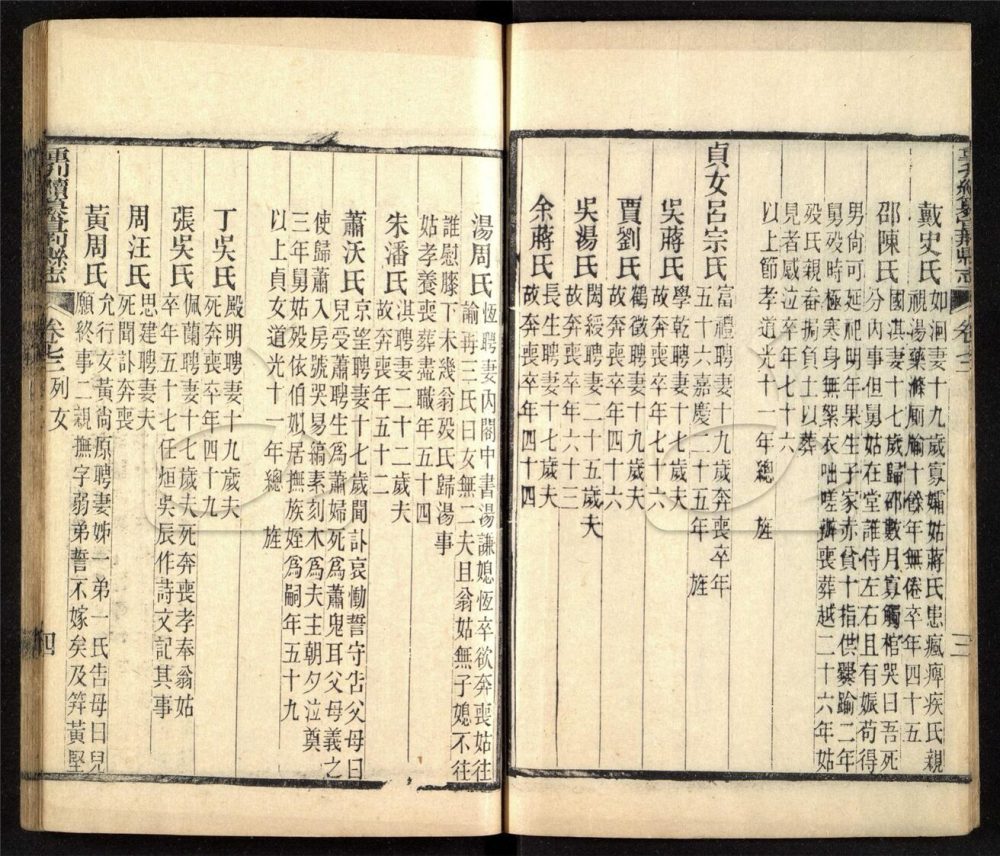 重刊續纂宜荊縣志 卷七之二 三
戴史氏 如洄妻十九歲寡孀姑蔣氏患瘋痺疾氏親
視湯藥滌廁牏十餘年無倦卒年四十五
邵陳氏 國淇妻十七歲歸邵數月寡觸棺哭曰吾死
分內事但舅姑在堂誰侍左右且有娠苟得
男尚可延祀明年果生子家亦貧十指供爨踰二年
舅歿時極寒身無絮衣咄嗟辦喪葬越二十六年姑
歿氏親畚挶負土以葬
見者感泣卒年七十六
以上節孝道光十一年總 旌
貞女呂宗氏 富禮聘妻十九歲奔喪卒年
五十六嘉慶二十五年 旌
吳蔣氏 學乾聘妻十七歲夫
故奔喪卒年七十六
賈劉氏 鶴徵聘妻十九歲夫
故奔喪卒年四十六
吳湯氏 閎綬聘妻二十五歲夫
故奔喪卒年六十三
余蔣氏 長生聘妻十七歲夫
故奔喪卒年四十四
湯周氏 恆聘妻內閣中書湯謙媳恆卒欲奔喪姑往
諭再三氏曰女無二夫且翁姑無子媳不往
誰慰膝下未幾翁歿氏歸湯事
姑孝養喪葬盡職年五十四
朱潘氏 淇聘妻二十二歲夫
故奔喪年五十二
蕭沃氏 京望聘妻十七歲聞訃哀慟誓守吿父母曰
兒受蕭聘生爲蕭婦死爲蕭鬼耳父母義之
使歸蕭入房號哭易縞素刻木爲夫主朝夕泣奠
三年舅姑歿依伯姒居撫族姪爲嗣年五十九
以上貞女道光十一年總 旌
丁吳氏 殿明聘妻十九歲夫
死奔喪卒年四十九
張吳氏 佩蘭聘妻十七歲夫死奔喪孝奉翁姑
卒年五十七任烜吳辰作詩文記其事
周汪氏 思建聘妻夫
死聞訃奔喪
黃周氏 允行女黃尚原聘妻姊一弟一氏吿母曰兒
願終事二親撫字弱弟誓不嫁矣及筓黃堅
重刊續纂宜荊縣志 卷七之二 列女 四